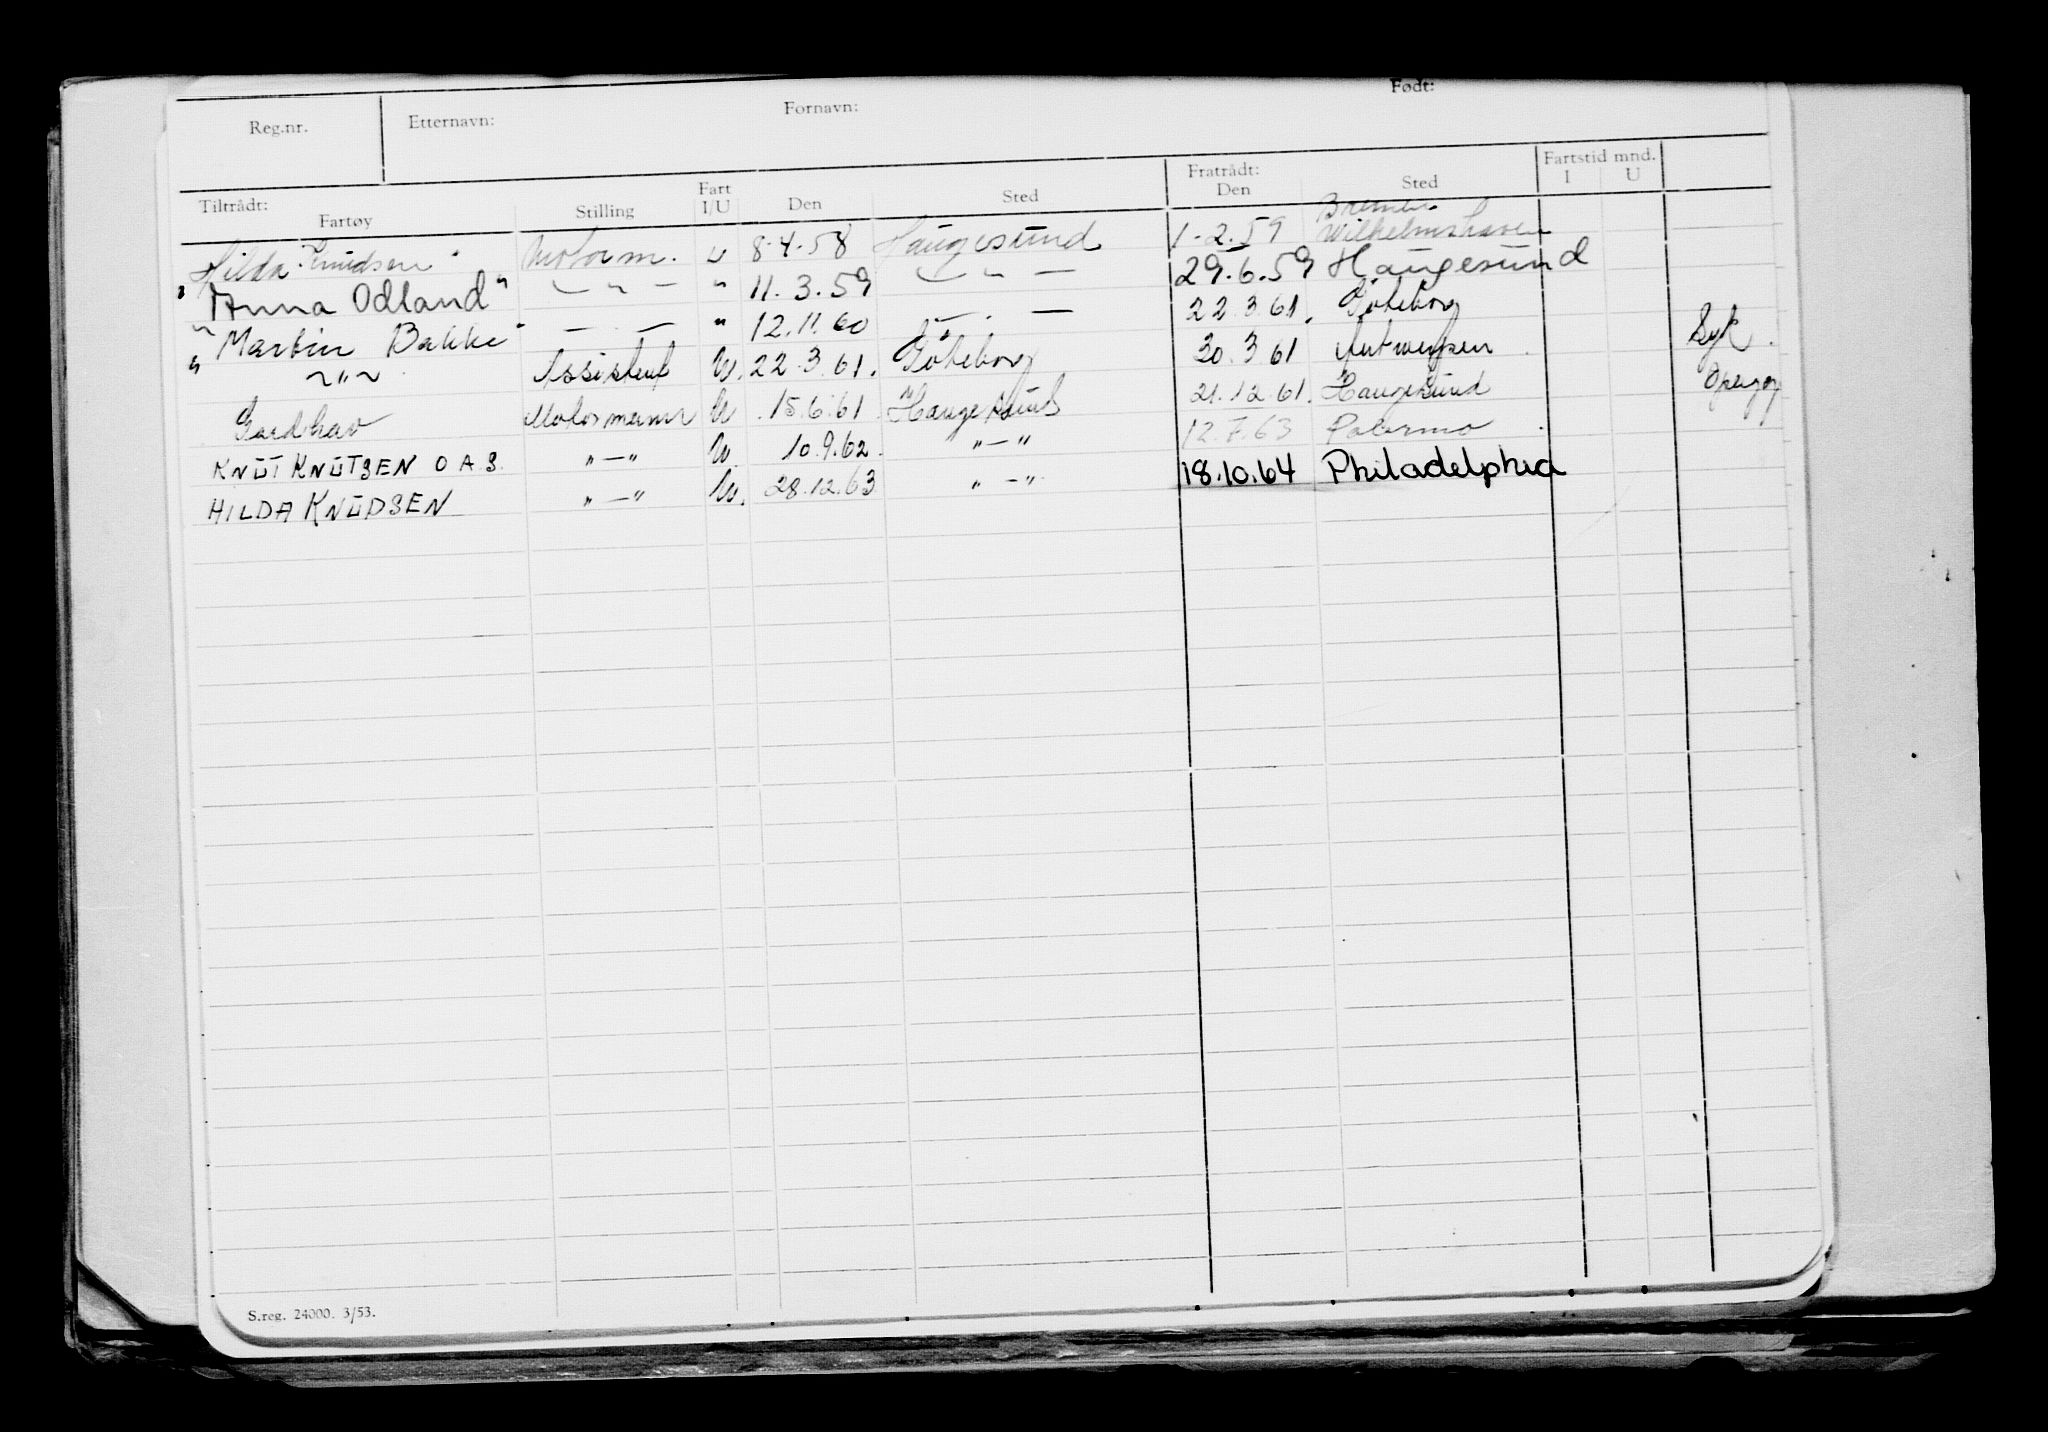 Reg.nr. Etternavn: Fornavn: Født:
Tiltrådt: Fratrådt: Fartstid mnd.
Fartøy Stilling Fart I/U Den Sted Den Sted I U
Bremen
"Hilda Knudsen" Motorm. u 8.4.58 Haugesund 1.2.59 Wilhelmshaven
"Anna Odland" — " — " 11.3.59 — " — 29.6.59 Haugesund
"Martin Bakke" — . — " 12.11.60 — . — 22.3.61. Göteborg
" ~"~ Assistent U. 22.3.61. Göteborg 30.3.61 Antwerpen Syk.
Gardhav Motormann U 15.6.61. Haugesund 21.12.61. Haugesund Oppsagt
KNUT KNUTSEN O A.S. "—" U 10.9.62. "—" 12.7.63 Palermo
HILDA KNUDSEN "—" U. 28.12.63 "—" 18.10.64 Philadelphia
S.reg. 24000. 3/53.